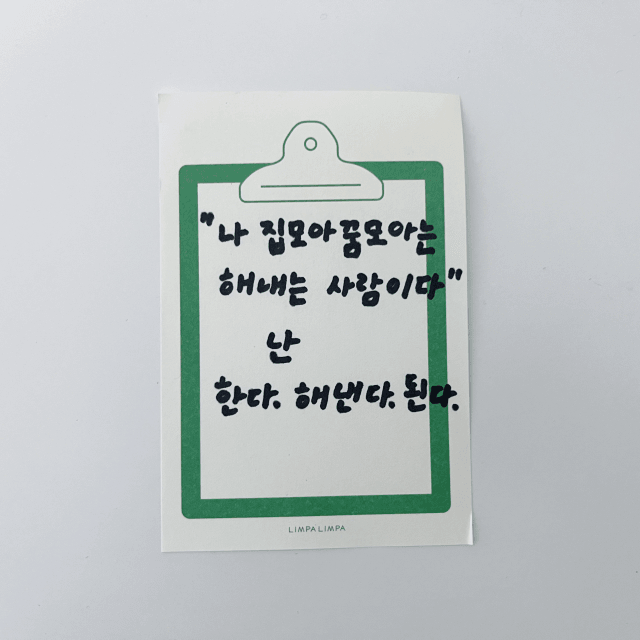 "나 집모아꿈모아는
해내는 사람이다"
난
한다. 해낸다. 된다.
LIMPALIMPA